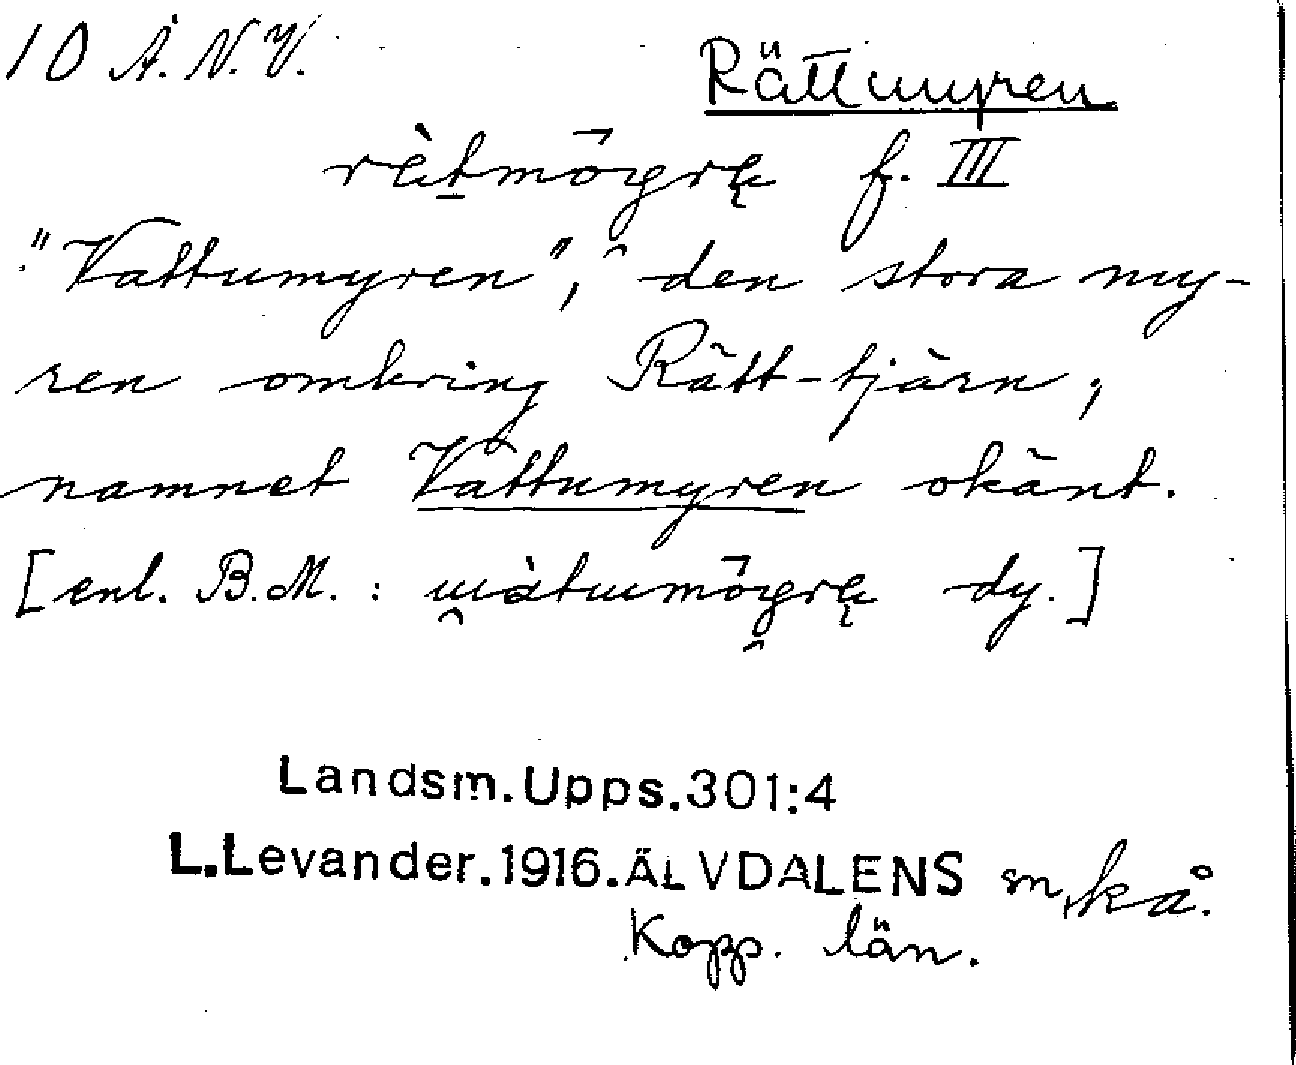 10 Å.N.V.
Rättmyren
rètmō̂grę f. III
"Vattumyren", den stora my-
ren omkring Rätt-tjärn,
namnet Vattumyren okänt.
[enl. B.M.: dy.]
Landsm.Upps.301:4
L.Levander.1916.ÄLVDALENS sn, kå.
Kopp. län.